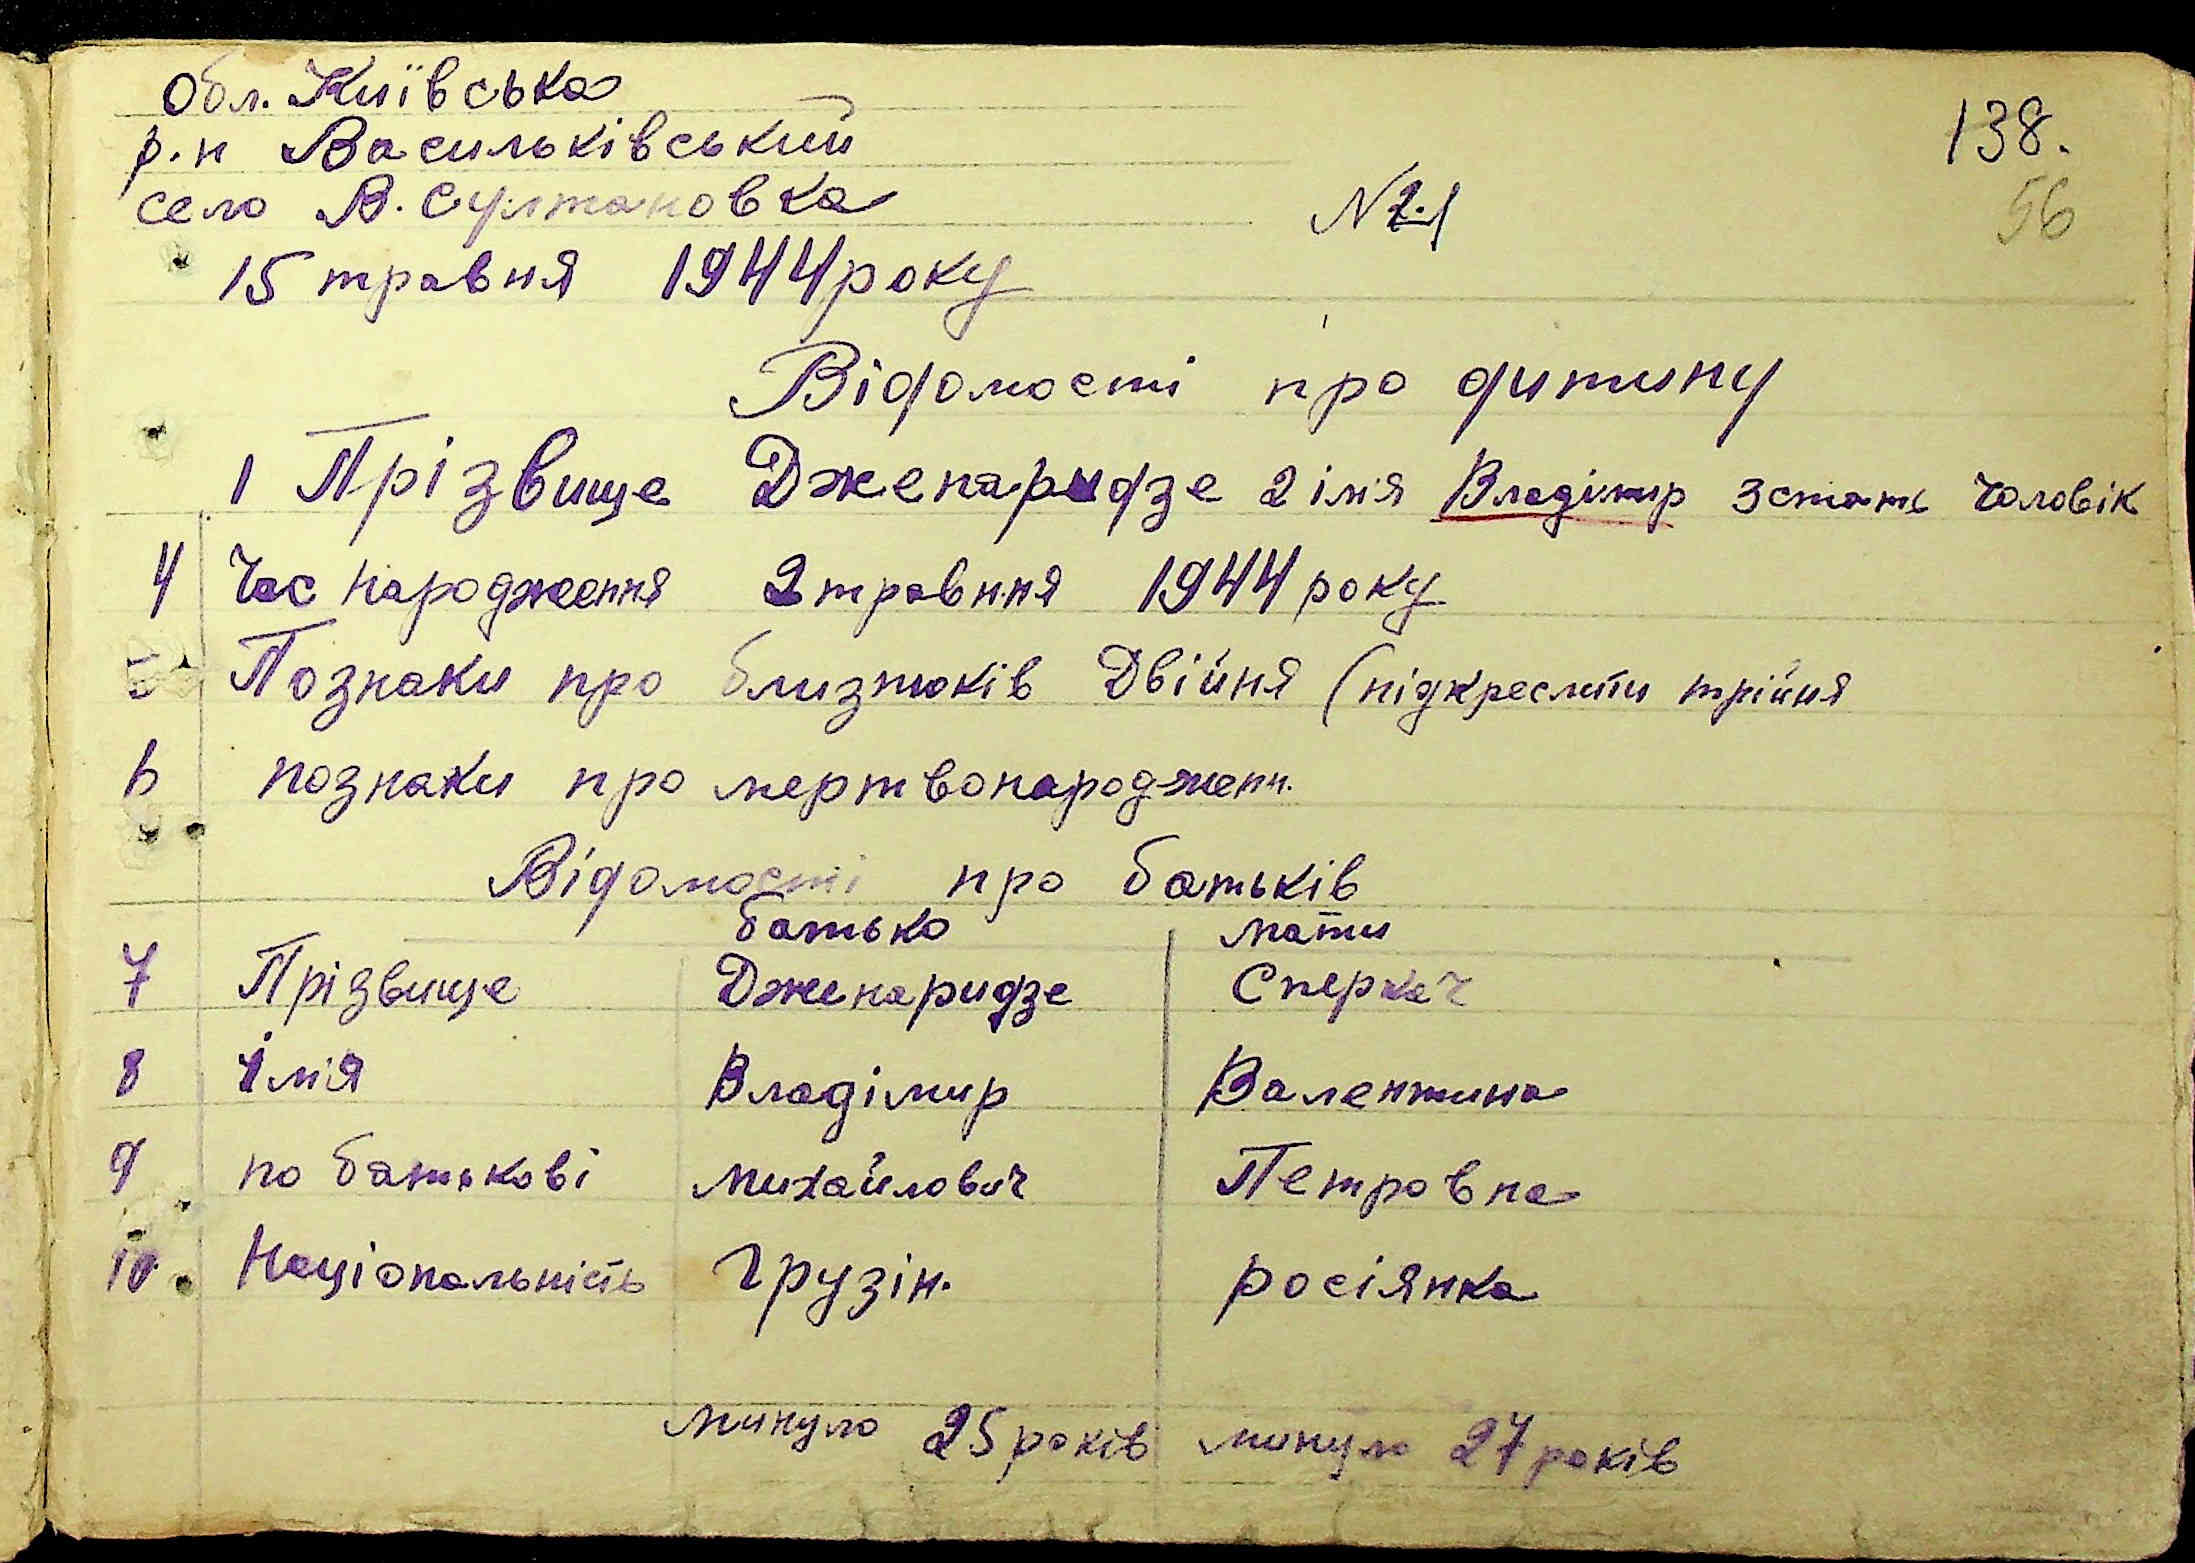 Обл. Київська
р.н Васильківський
138.
село В. Султановка
№ 21
56
15 травня 1944 року
Відомості про дитину
1 Прізвище Дженаридзе 2 імя Владімир 3 стать чоловік
4 Час народження 2 травння 1944 року
5 Познаки про близнюків Двійня (підкреслити трійня
6 познаки про мертвонароджен.
Відомості про батьків
батько мати
7 Прізвище Дженаридзе Сперкач
8 Імія Владімир Валентина
9 по батькові Михайлович Петровна
10. Національність Грузін. росіянка
минуло 25 років минуло 27 років